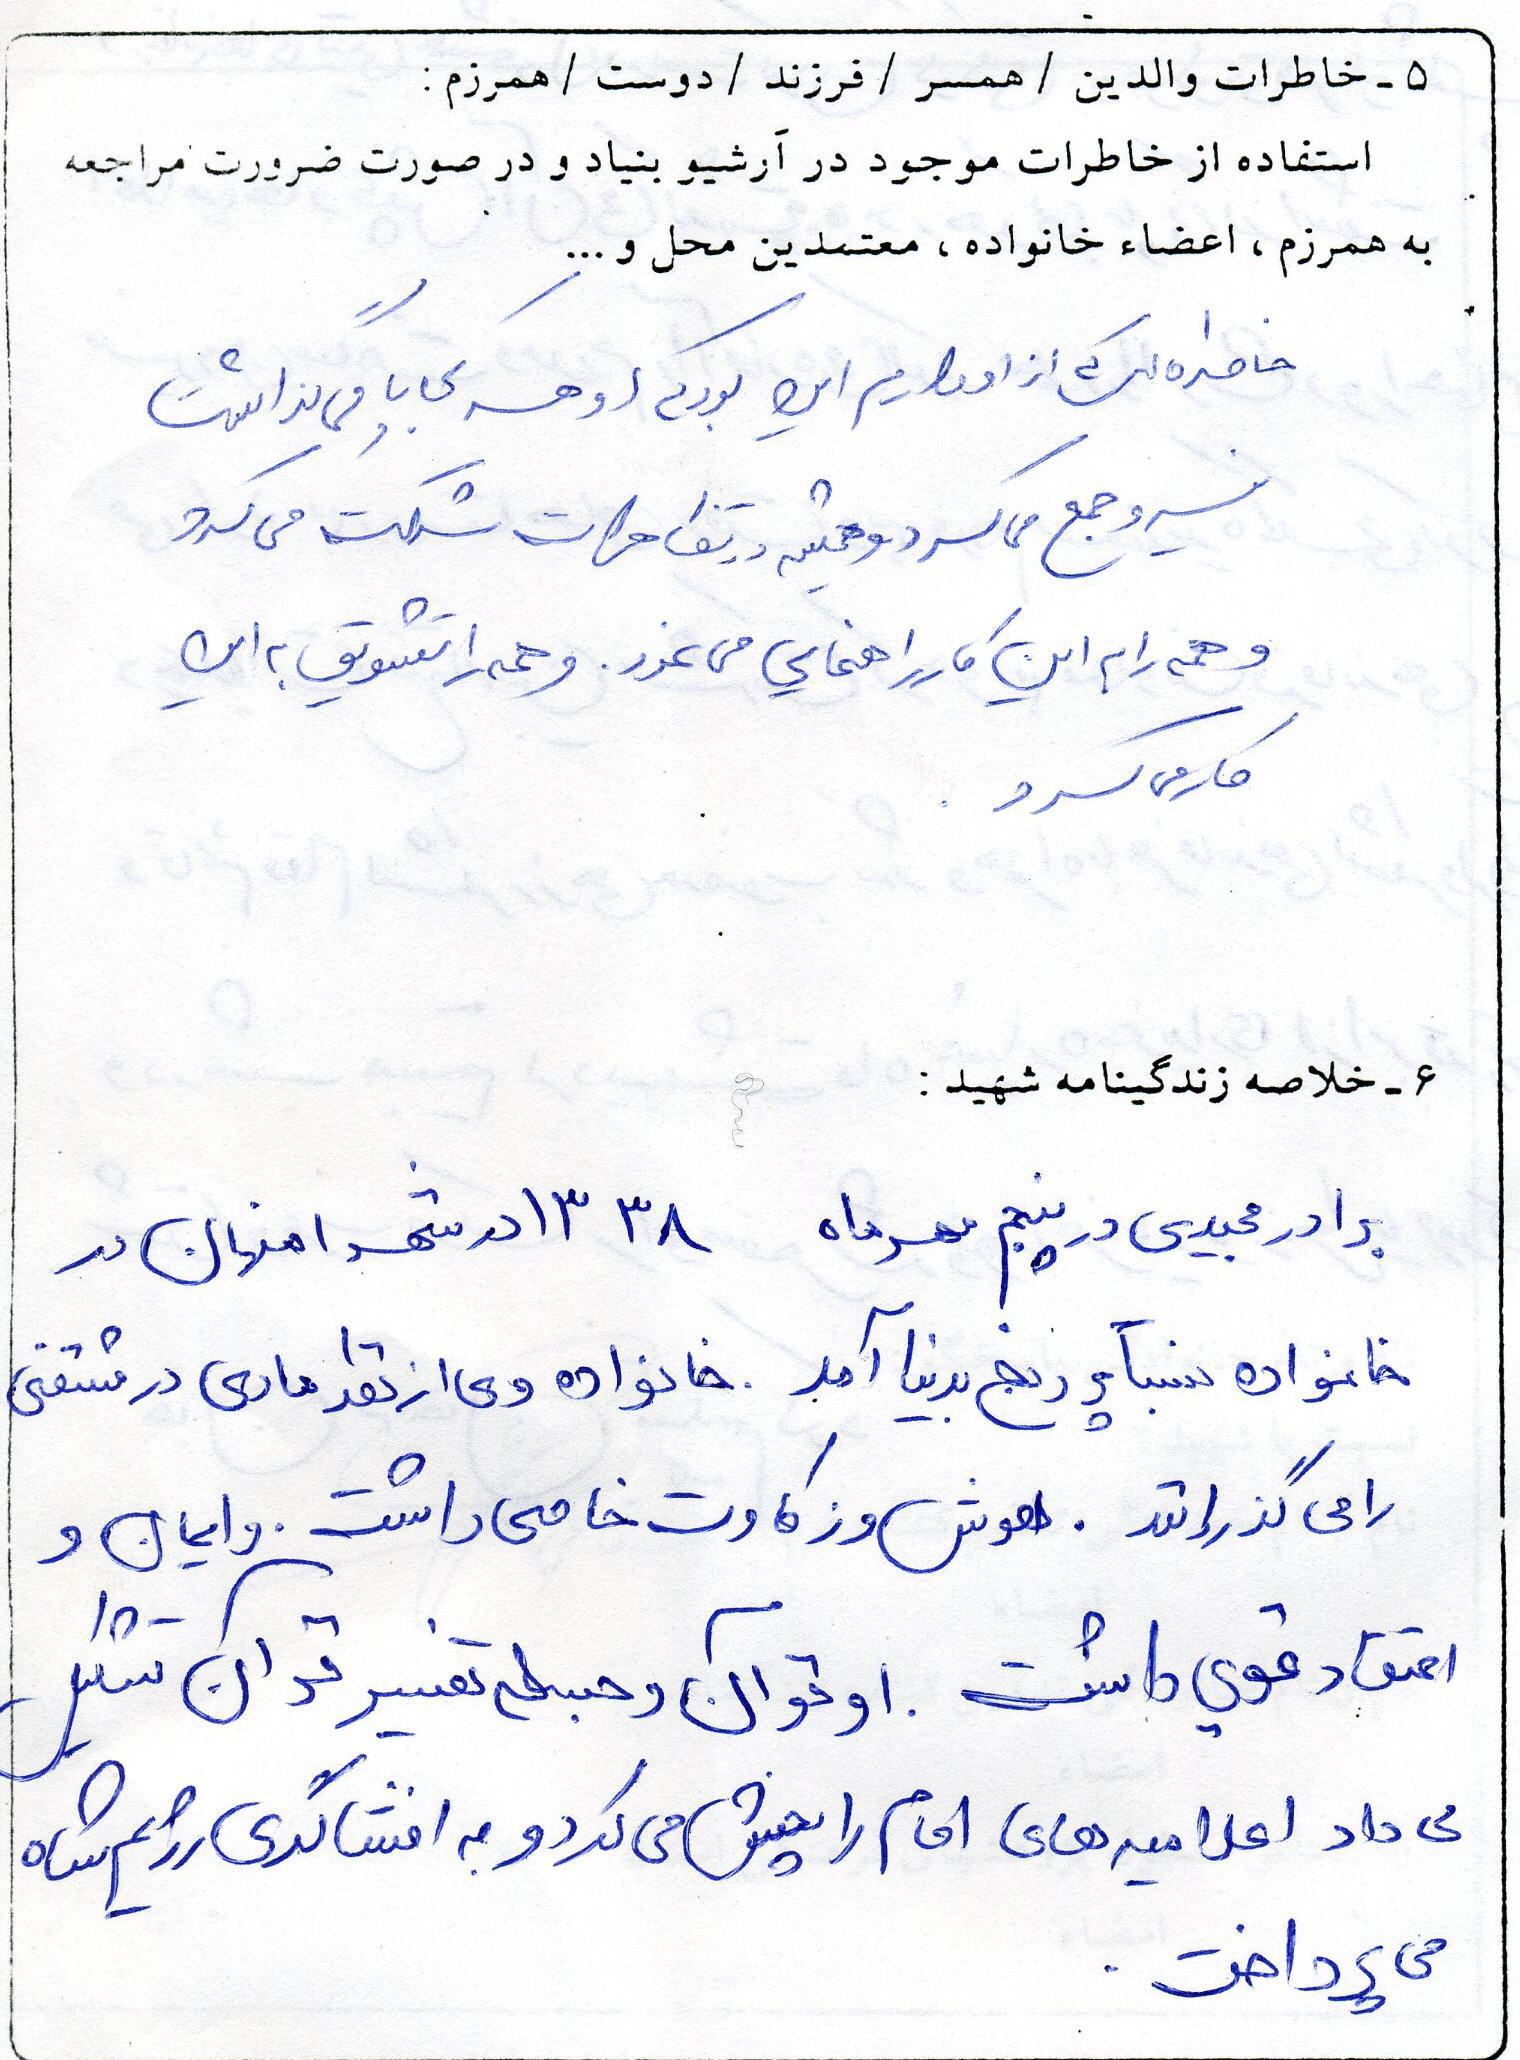 ۵ - خاطرات والدین / همسر / فرزند / دوست / همرزم :
استفاده از خاطرات موجود در آرشیو بنیاد و در صورت ضرورت مراجعه
به همرزم ، اعضاء خانواده ، معتمدین محل و ...
خاطره ای که از او داریم این بود که او همه کجا پا می گذاشت
نیرو جمع می کرد و همیشه در تظاهرات شرکت می کرد
و همه را به این کار راهنمایی می نمود . و همه را تشویق به این
کار می کرد .
۶ - خلاصه زندگینامه شهید :
برادر مجیدی در پنجم مهر ماه ۱۳۳۸ در شهر اصفهان در
خانواده نسبتاً پر رنج بدنیا آمد . خانواده وی از نظر مادی در مشقتی
را می گذراند . هوش و زکاوت خاصی داشت . و ایمان و
اعتقاد قوی داشت . او قرآن و جلسه تفسیر قرآن تشکیل
می داد اعلامیه های امام را پخش می کرد و به افشاگری رژیم شاه
می پرداخت .